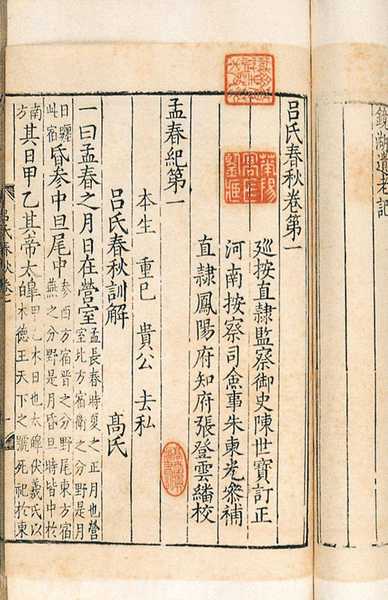 鏡湖遺老記
呂氏春秋卷第一
廵按直隷監察御史陳世寶訂正
河南按察司僉事朱東光叅補
直隷鳳陽府知府張登雲繙校
孟春紀第一
本生 重巳 貴公 去私
呂氏春秋訓解 高氏
一曰孟春之月日在營室孟長春時夏之正月也營室北方宿衛之分野是月
日躔此宿昏參中旦尾中參西方宿晉之分野尾東方宿燕之分野是月昏旦時皆中於
南方其日甲乙其帝太皞甲乙木日也太皞伏羲氏以木德王天下之號死祀於東